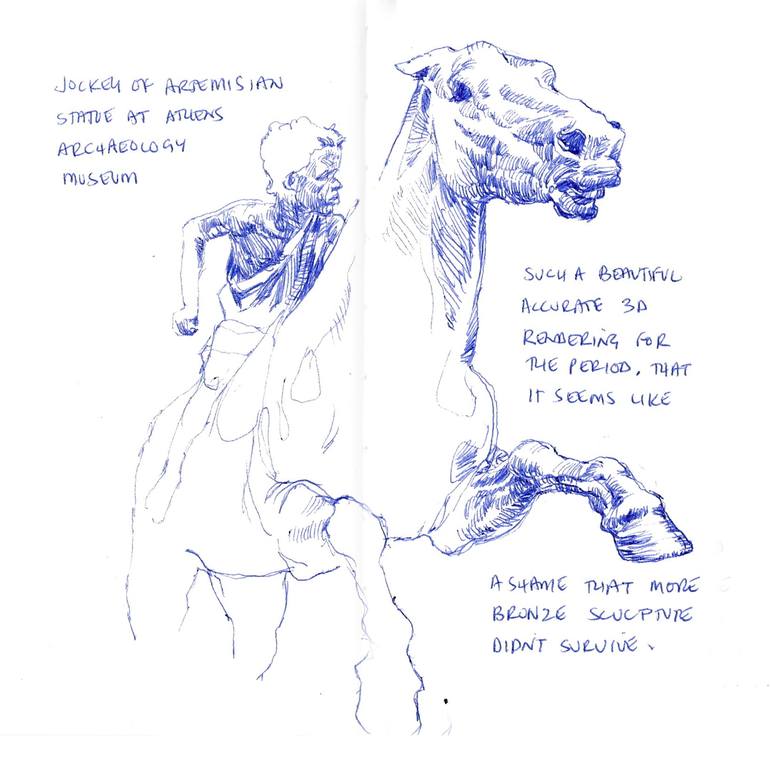 JOCKEY OF ARTEMISIAN
STATUE AT ATHENS
ARCHAEOLOGY
MUSEUM
SUCH A BEAUTIFUL
ACCURATE 3D
RENDERING FOR
THE PERIOD, THAT
IT SEEMS LIKE
A SHAME THAT MORE
BRONZE SCULPTURE
DIDNT SURVIVE.